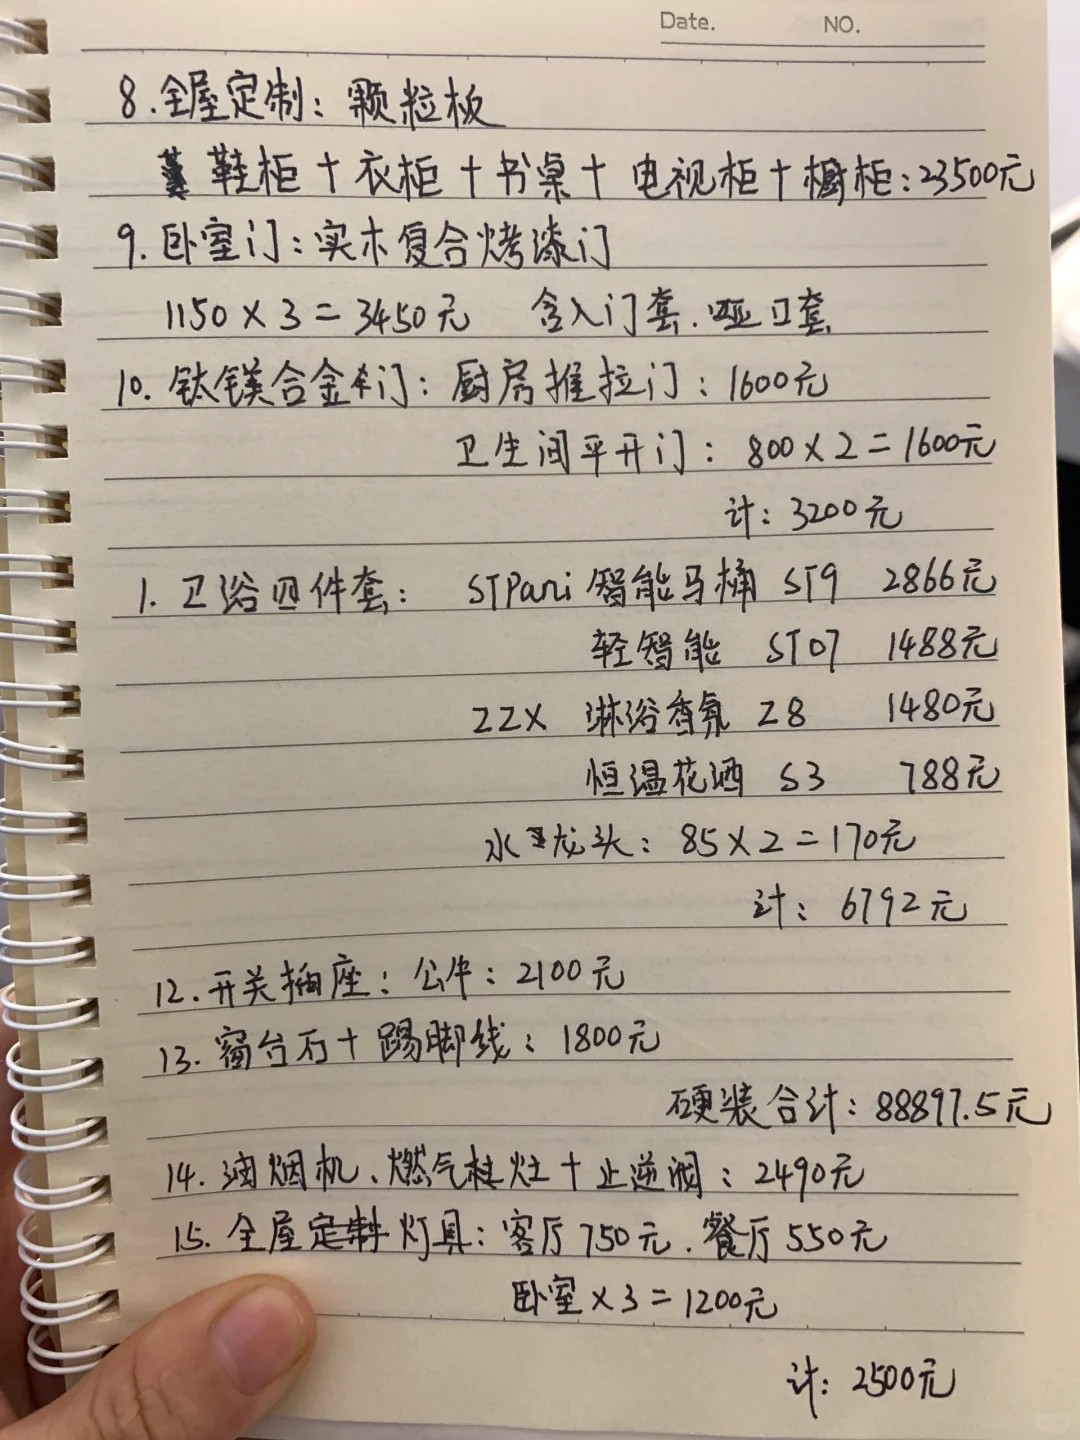 Date.	NO.
8.全屋定制：颗粒板
鞋柜+衣柜+书桌+电视柜+橱柜：23500元
9.卧室门：实木复合烤漆门
1150×3=3450元 含入门套.哑口套
10.钛镁合金门：厨房推拉门：1600元
卫生间平开门：800×2=1600元
计：3200元
1.卫浴四件套：STPani智能马桶 ST9 2866元
轻智能 ST07 1488元
ZZX 淋浴香氛 Z8 1480元
恒温花洒 S3 788元
水龙头：85×2=170元
计：6792元
12.开关插座：公牛：2100元
13.窗台石+踢脚线：1800元
硬装合计：88897.5元
14.油烟机、燃气灶+止逆阀：2490元
15.全屋灯具：客厅750元.餐厅550元
卧室×3=1200元
计：2500元